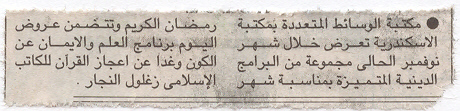 ● مكتبة الوسائط المتعددة بمكتبة
الاسكندرية تعرض خلال شهر
نوفمبر الحالى مجموعة من البرامج
الدينية المتميزة بمناسبة شهر
رمضان الكريم وتتضمن عروض
اليوم برنامج العلم والايمان عن
الكون وغدا عن اعجاز القرآن للكاتب
الإسلامى زغلول النجار .